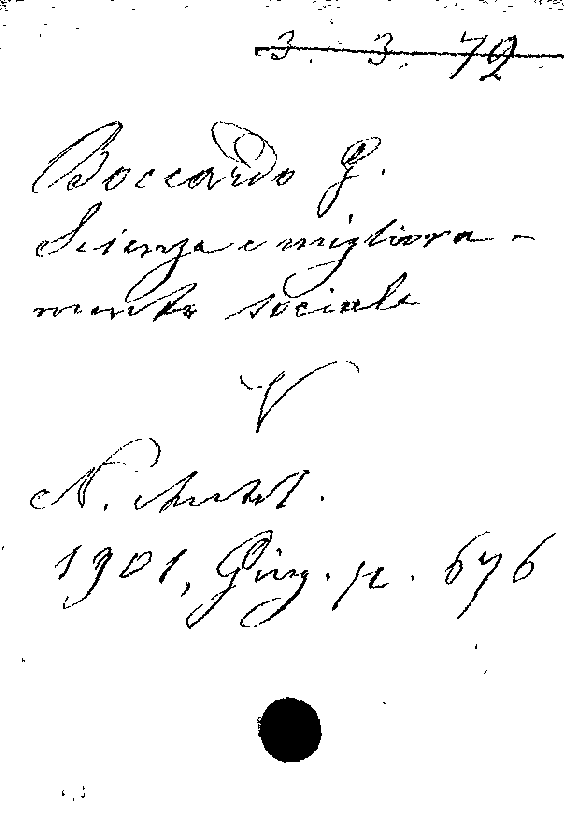 3. 3. 72
Boccardo G.
Scienza e migliora-
mento sociale
V
N. Antol.
1901, Giug. p. 676